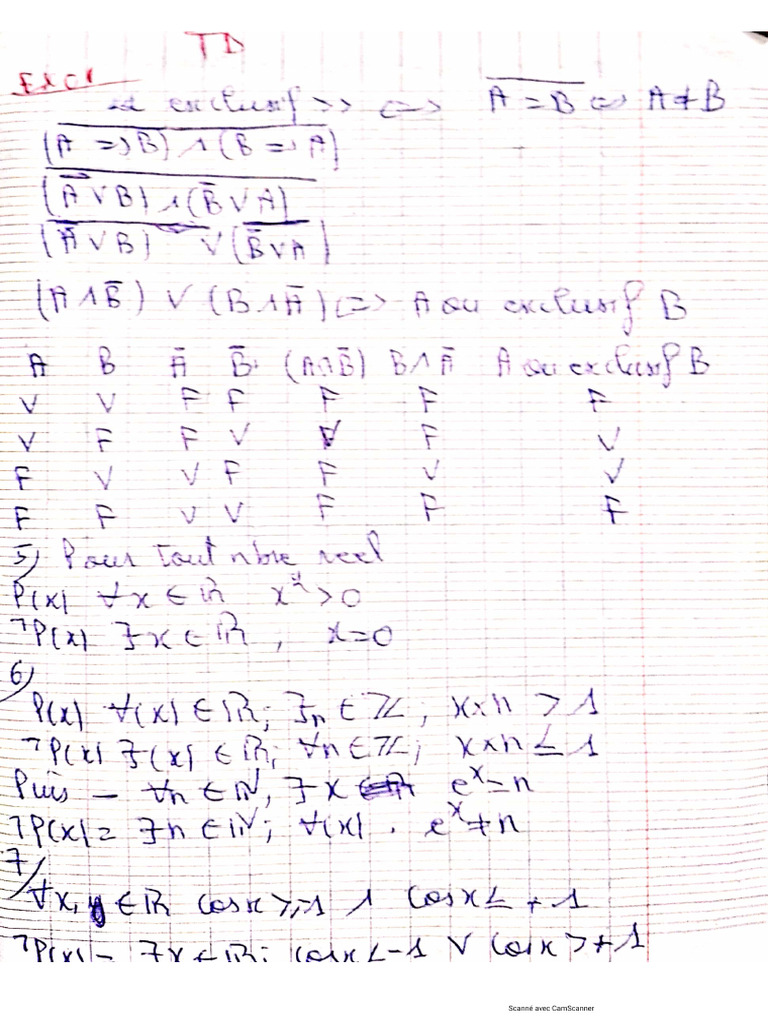 TD
Exc1
ou exclusif >> <=> \overline{A = B} <=> A ≠ B
\overline{(A => B) ∧ (B => A)}
\overline{(\overline{A} ∨ B) ∧ (\overline{B} ∨ A)}
\overline{(\overline{A} ∨ B)} ∨ \overline{(\overline{B} ∨ A)}
(A ∧ \overline{B}) ∨ (B ∧ \overline{A}) <=> A ou exclusif B
A B \overline{A} \overline{B} (A∩\overline{B}) B∧\overline{A} A ou exclusif B
V V F F F F F
V F F V V F V
F V V F F V V
F F V V F F F
5) Pour tout nbre reel
P(x) ∀x ∈ ℝ x² > 0
¬P(x) ∃x ∈ ℝ, x = 0
6)
P(x) ∀(x) ∈ ℝ; ∃n ∈ ℤ; x×n > 1
¬P(x) ∃(x) ∈ ℝ; ∀n ∈ ℤ; x×n ≤ 1
Puis – ∀n ∈ ℕ, ∃x e^x = n
¬P(x) = ∃n ∈ ℕ; ∀(x) . e^x ≠ n
7)
∀x, y ∈ ℝ cosx ≥ -1 ∧ cosx ≤ +1
¬P(x) = ∃x ∈ ℝ; cosx < -1 ∨ cosx > +1
Scanné avec CamScanner